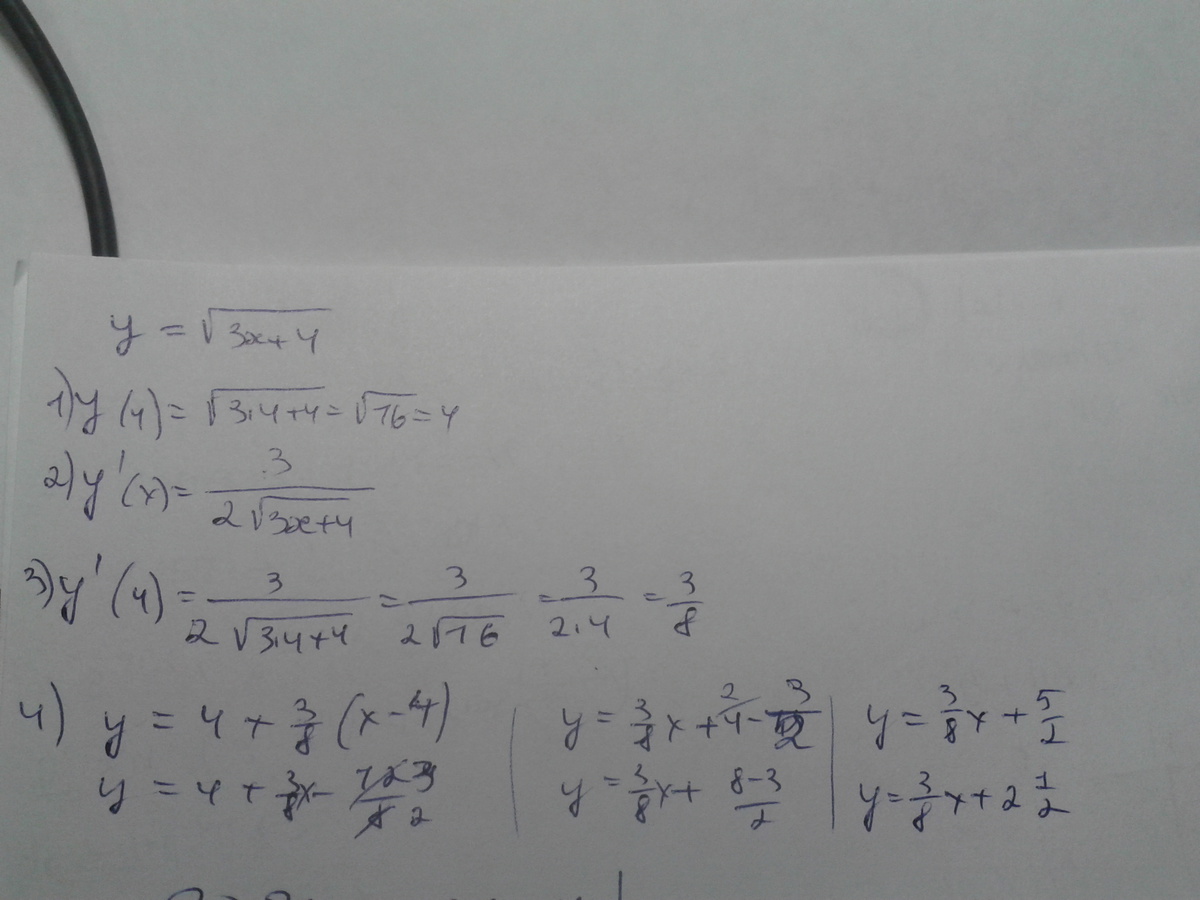 y = √(3x+4)
1) y(4) = √(3·4+4) = √16 = 4
2) y'(x) = 3/(2√(3x+4))
3) y'(4) = 3/(2√(3·4+4)) = 3/(2√16) = 3/(2·4) = 3/8
4) y = 4 + 3/8 (x-4)
y = 4 + 3/8 x - 3/2
y = 3/8 x + 4 - 3/2
y = 3/8 x + (8-3)/2
y = 3/8 x + 5/2
y = 3/8 x + 2 1/2